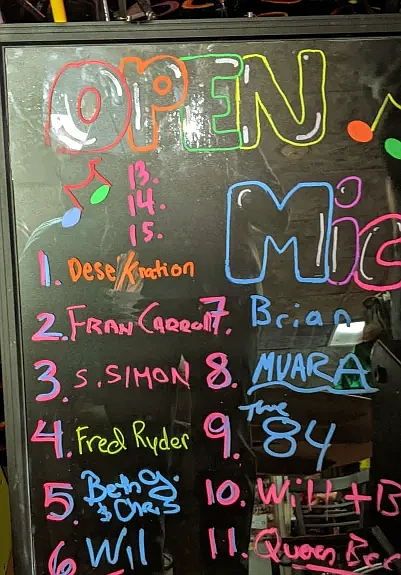 OPEN
Mic
13.
14.
15.
1. Desekration
2. FRAN CARROLL
3. S. SIMON
4. Fred Ryder
5. Beth G.
& Chris
6 Wil
7. Brian
8. MUARA
9. The
84
10. Will + B
11. Queen Bee